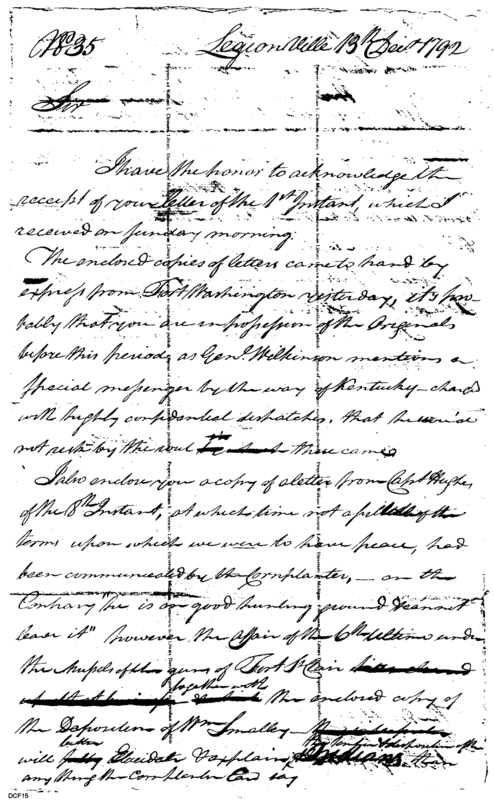 No. 35 Legion Ville 13th Decr. 1792
Sir
I have the honor to acknowledge the
receipt of your letter of the 1st Instant, which I
received on sunday morning.
The enclosed copies of letters came to hand by
express from Fort Washington yesterday, it's pro-
bably that you are in possession of the Originals
before this period, as Genl. Wilkinson mentions a
special messenger by the way of Kentucky – charg'd
with highly confidential dispatches, that he wou'd
not risk by the rout these came
I also enclose you a copy of a letter from Capt Hughes
of the 8th Instant, at which time not a syllable of the
terms upon which we were to have peace, had
been communicated by the Cornplanter, – on the
Contrary "he is on good hunting ground & cannot
leave it" however the affair of the 6th ultimo under
the guns of Fort St Clair
together with the enclosed copy of
the Deposition of Wm Smalley –
will better Elucidate & explain the disposition of the Indians than
any thing the Cornplanter Can say
DCF15